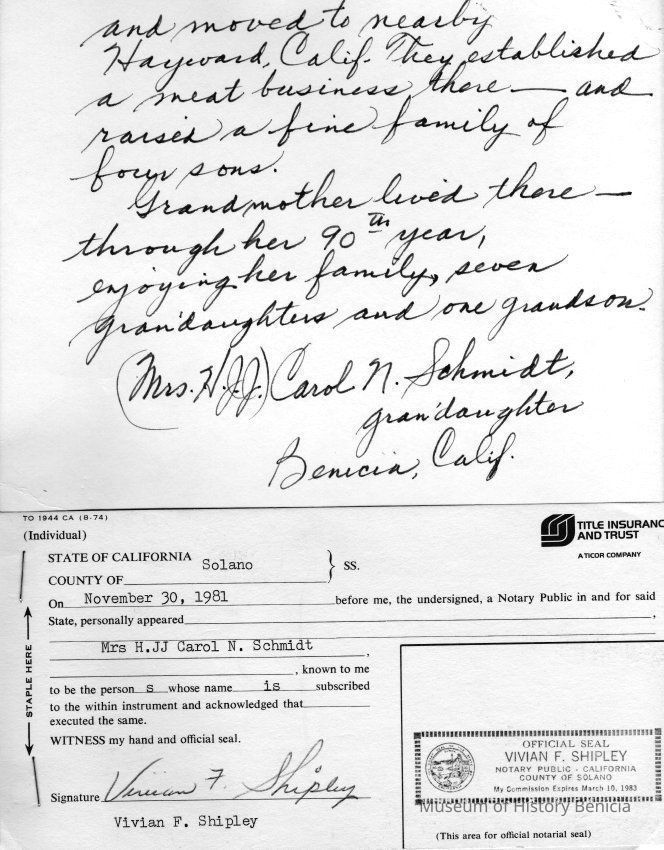 and moved to nearby
Hayward, Calif. They established
a meat business there — and
raised a fine family of
four sons.
Grandmother lived there —
through her 90th year,
enjoying her family, seven
gran'daughters and one grandson.
(Mrs. H.J.J.) Carol N. Schmidt,
gran'daughter
Benicia, Calif.
TO 1944 CA (8-74)
(Individual)
TITLE INSURANC
AND TRUST
A TICOR COMPANY
STATE OF CALIFORNIA
COUNTY OF Solano } SS.
On November 30, 1981 before me, the undersigned, a Notary Public in and for said
State, personally appeared ,
Mrs H.JJ Carol N. Schmidt ,
, known to me
to be the person s whose name is subscribed
to the within instrument and acknowledged that
executed the same.
WITNESS my hand and official seal.
Signature Vivian F. Shipley
Vivian F. Shipley
STAPLE HERE
OFFICIAL SEAL
VIVIAN F. SHIPLEY
NOTARY PUBLIC - CALIFORNIA
COUNTY OF SOLANO
My Commission Expires March 10, 1983
Museum of History Benicia
(This area for official notarial seal)